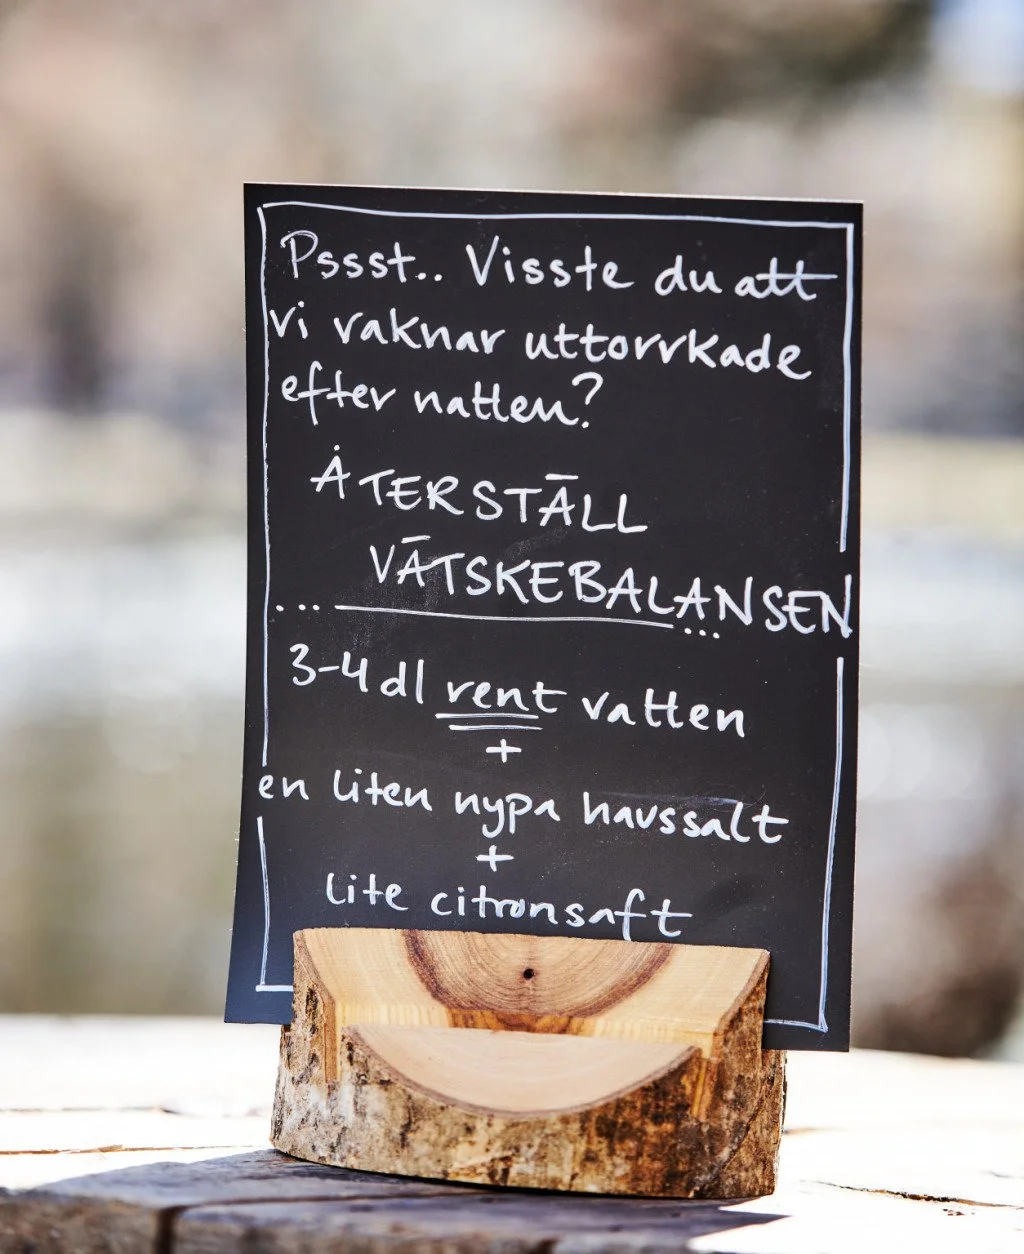 Pssst.. Visste du att
vi vaknar uttorrkade
efter natten?
ÅTERSTÄLL
VÄTSKEBALANSEN
... ...
3-4 dl rent vatten
+
en liten nypa havssalt
+
lite citronsaft